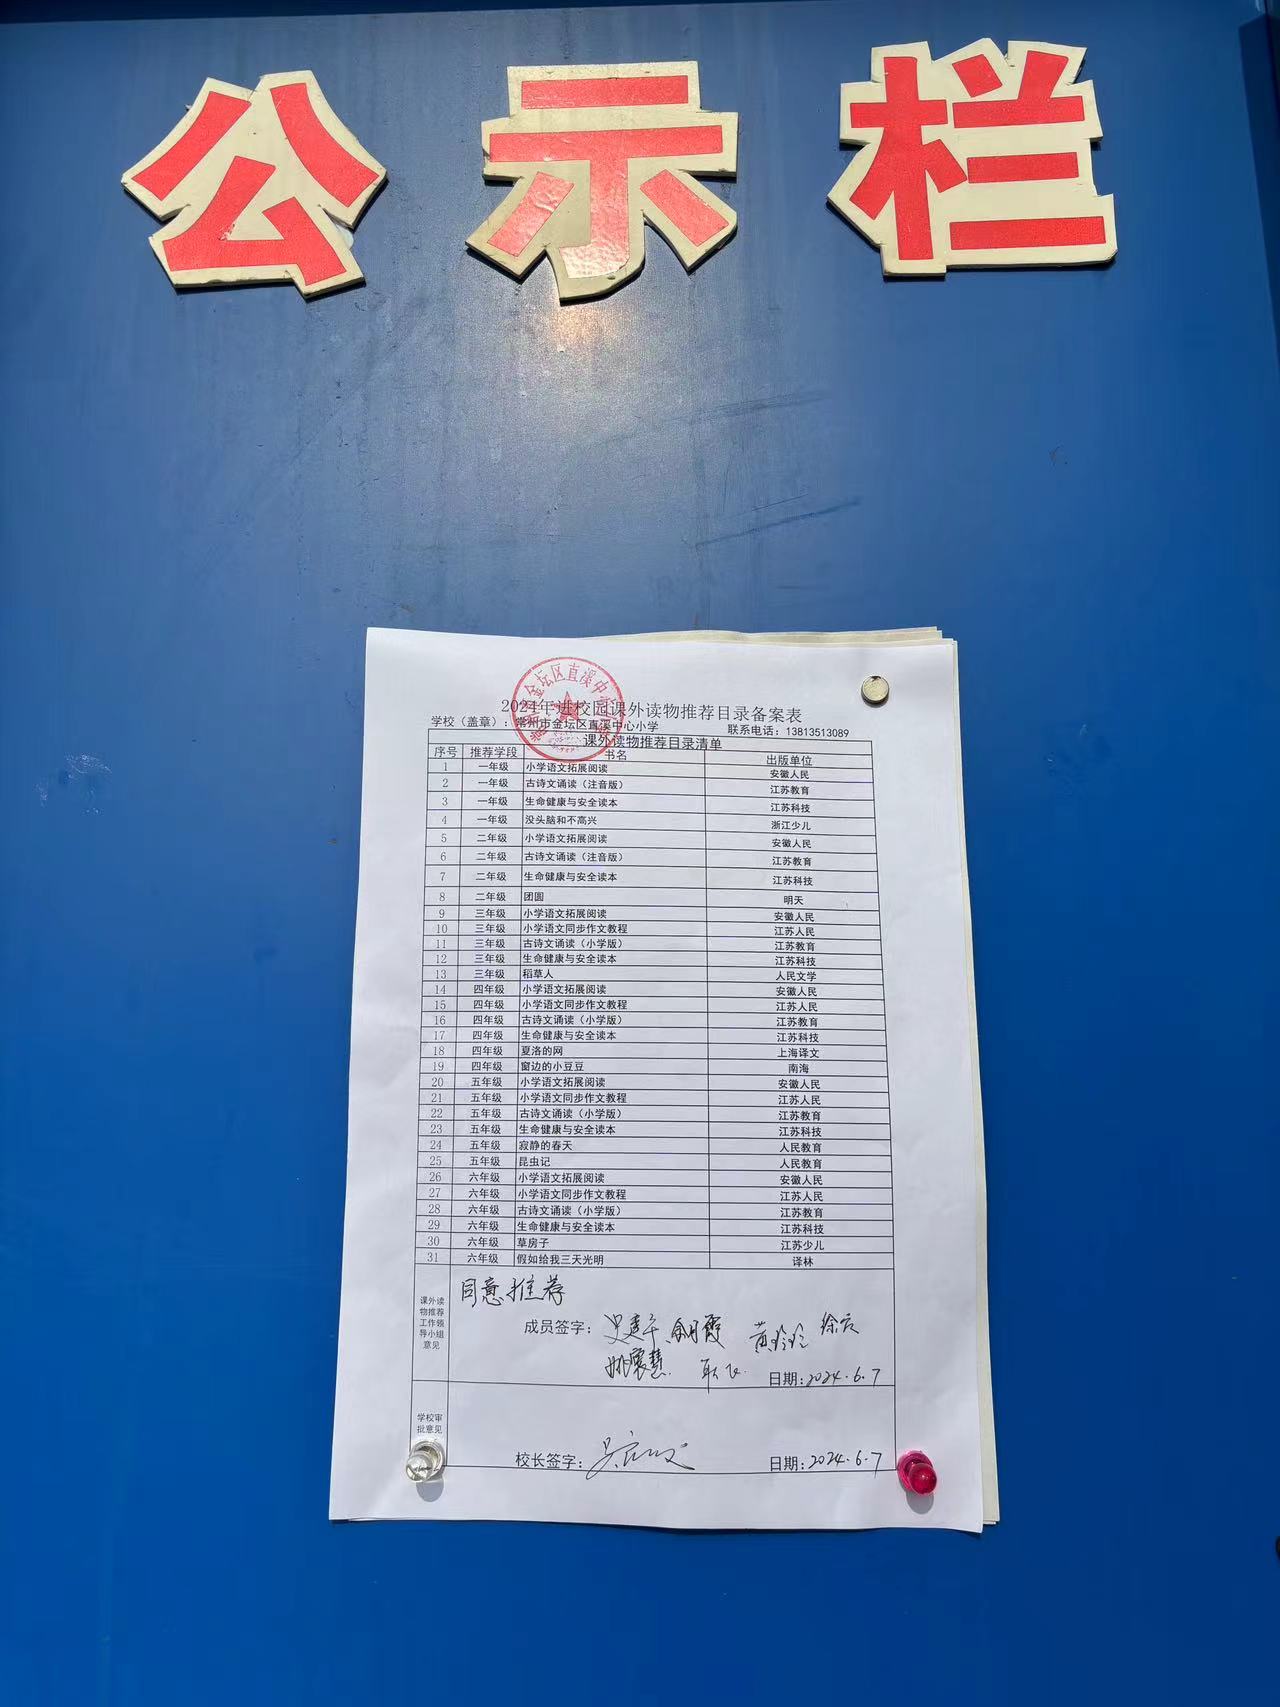 公示栏
2024年进校园课外读物推荐目录备案表
学校（盖章）：常州市金坛区直溪中心小学 联系电话：13813513089
课外读物推荐目录清单
序号 推荐学段 书名 出版单位
1 一年级 小学语文拓展阅读 安徽人民
2 一年级 古诗文诵读（注音版） 江苏教育
3 一年级 生命健康与安全读本 江苏科技
4 一年级 没头脑和不高兴 浙江少儿
5 二年级 小学语文拓展阅读 安徽人民
6 二年级 古诗文诵读（注音版） 江苏教育
7 二年级 生命健康与安全读本 江苏科技
8 二年级 团圆 明天
9 三年级 小学语文拓展阅读 安徽人民
10 三年级 小学语文同步作文教程 江苏人民
11 三年级 古诗文诵读（小学版） 江苏教育
12 三年级 生命健康与安全读本 江苏科技
13 三年级 稻草人 人民文学
14 四年级 小学语文拓展阅读 安徽人民
15 四年级 小学语文同步作文教程 江苏人民
16 四年级 古诗文诵读（小学版） 江苏教育
17 四年级 生命健康与安全读本 江苏科技
18 四年级 夏洛的网 上海译文
19 四年级 窗边的小豆豆 南海
20 五年级 小学语文拓展阅读 安徽人民
21 五年级 小学语文同步作文教程 江苏人民
22 五年级 古诗文诵读（小学版） 江苏教育
23 五年级 生命健康与安全读本 江苏科技
24 五年级 寂静的春天 人民教育
25 五年级 昆虫记 人民教育
26 六年级 小学语文拓展阅读 安徽人民
27 六年级 小学语文同步作文教程 江苏人民
28 六年级 古诗文诵读（小学版） 江苏教育
29 六年级 生命健康与安全读本 江苏科技
30 六年级 草房子 江苏少儿
31 六年级 假如给我三天光明 译林
课外读
物推荐
工作领
导小组
意见
同意推荐
成员签字：
日期：2024.6.7
学校审
批意见
校长签字：
日期：2024.6.7